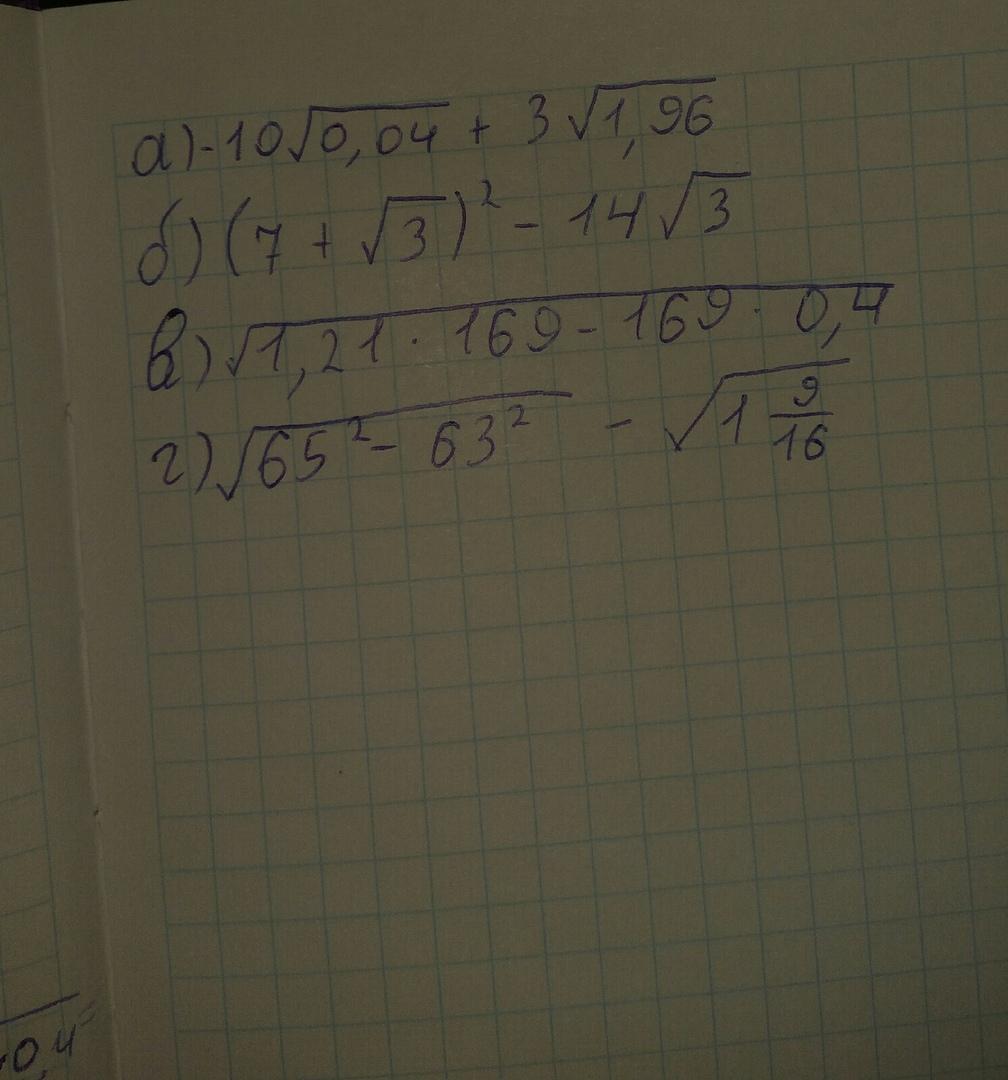 а) -10√0,04 + 3√1,96
б) (7 + √3)² - 14√3
в) √1,21 · 169 - 169 · 0,4
г) √65² - 63² - √1 9/16
0,4